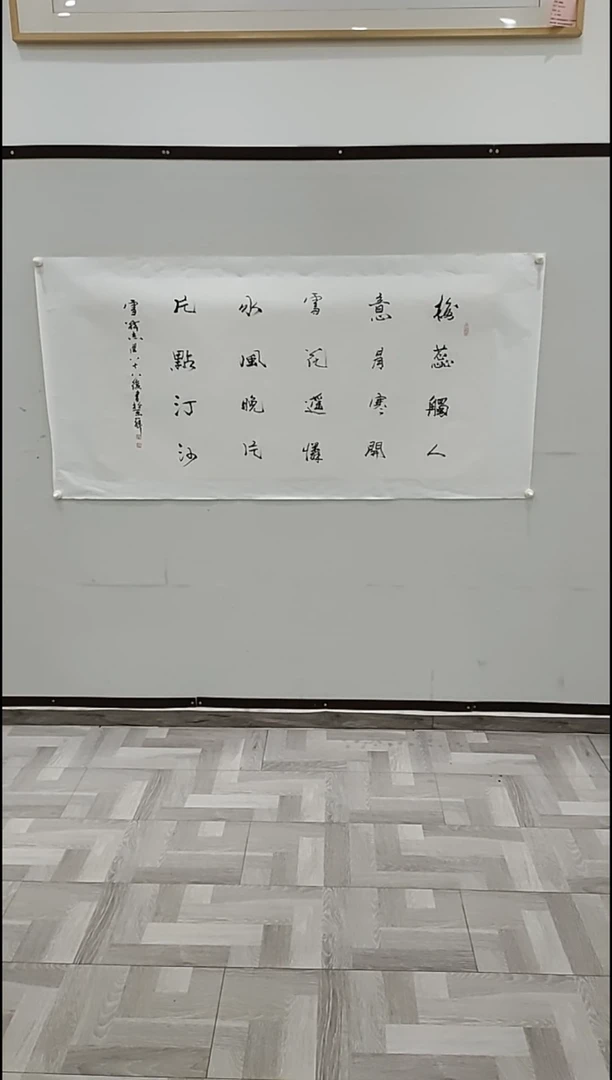 梅蕊觸人
意冒寒開
雪花遥憐
水風晚片
片點汀沙